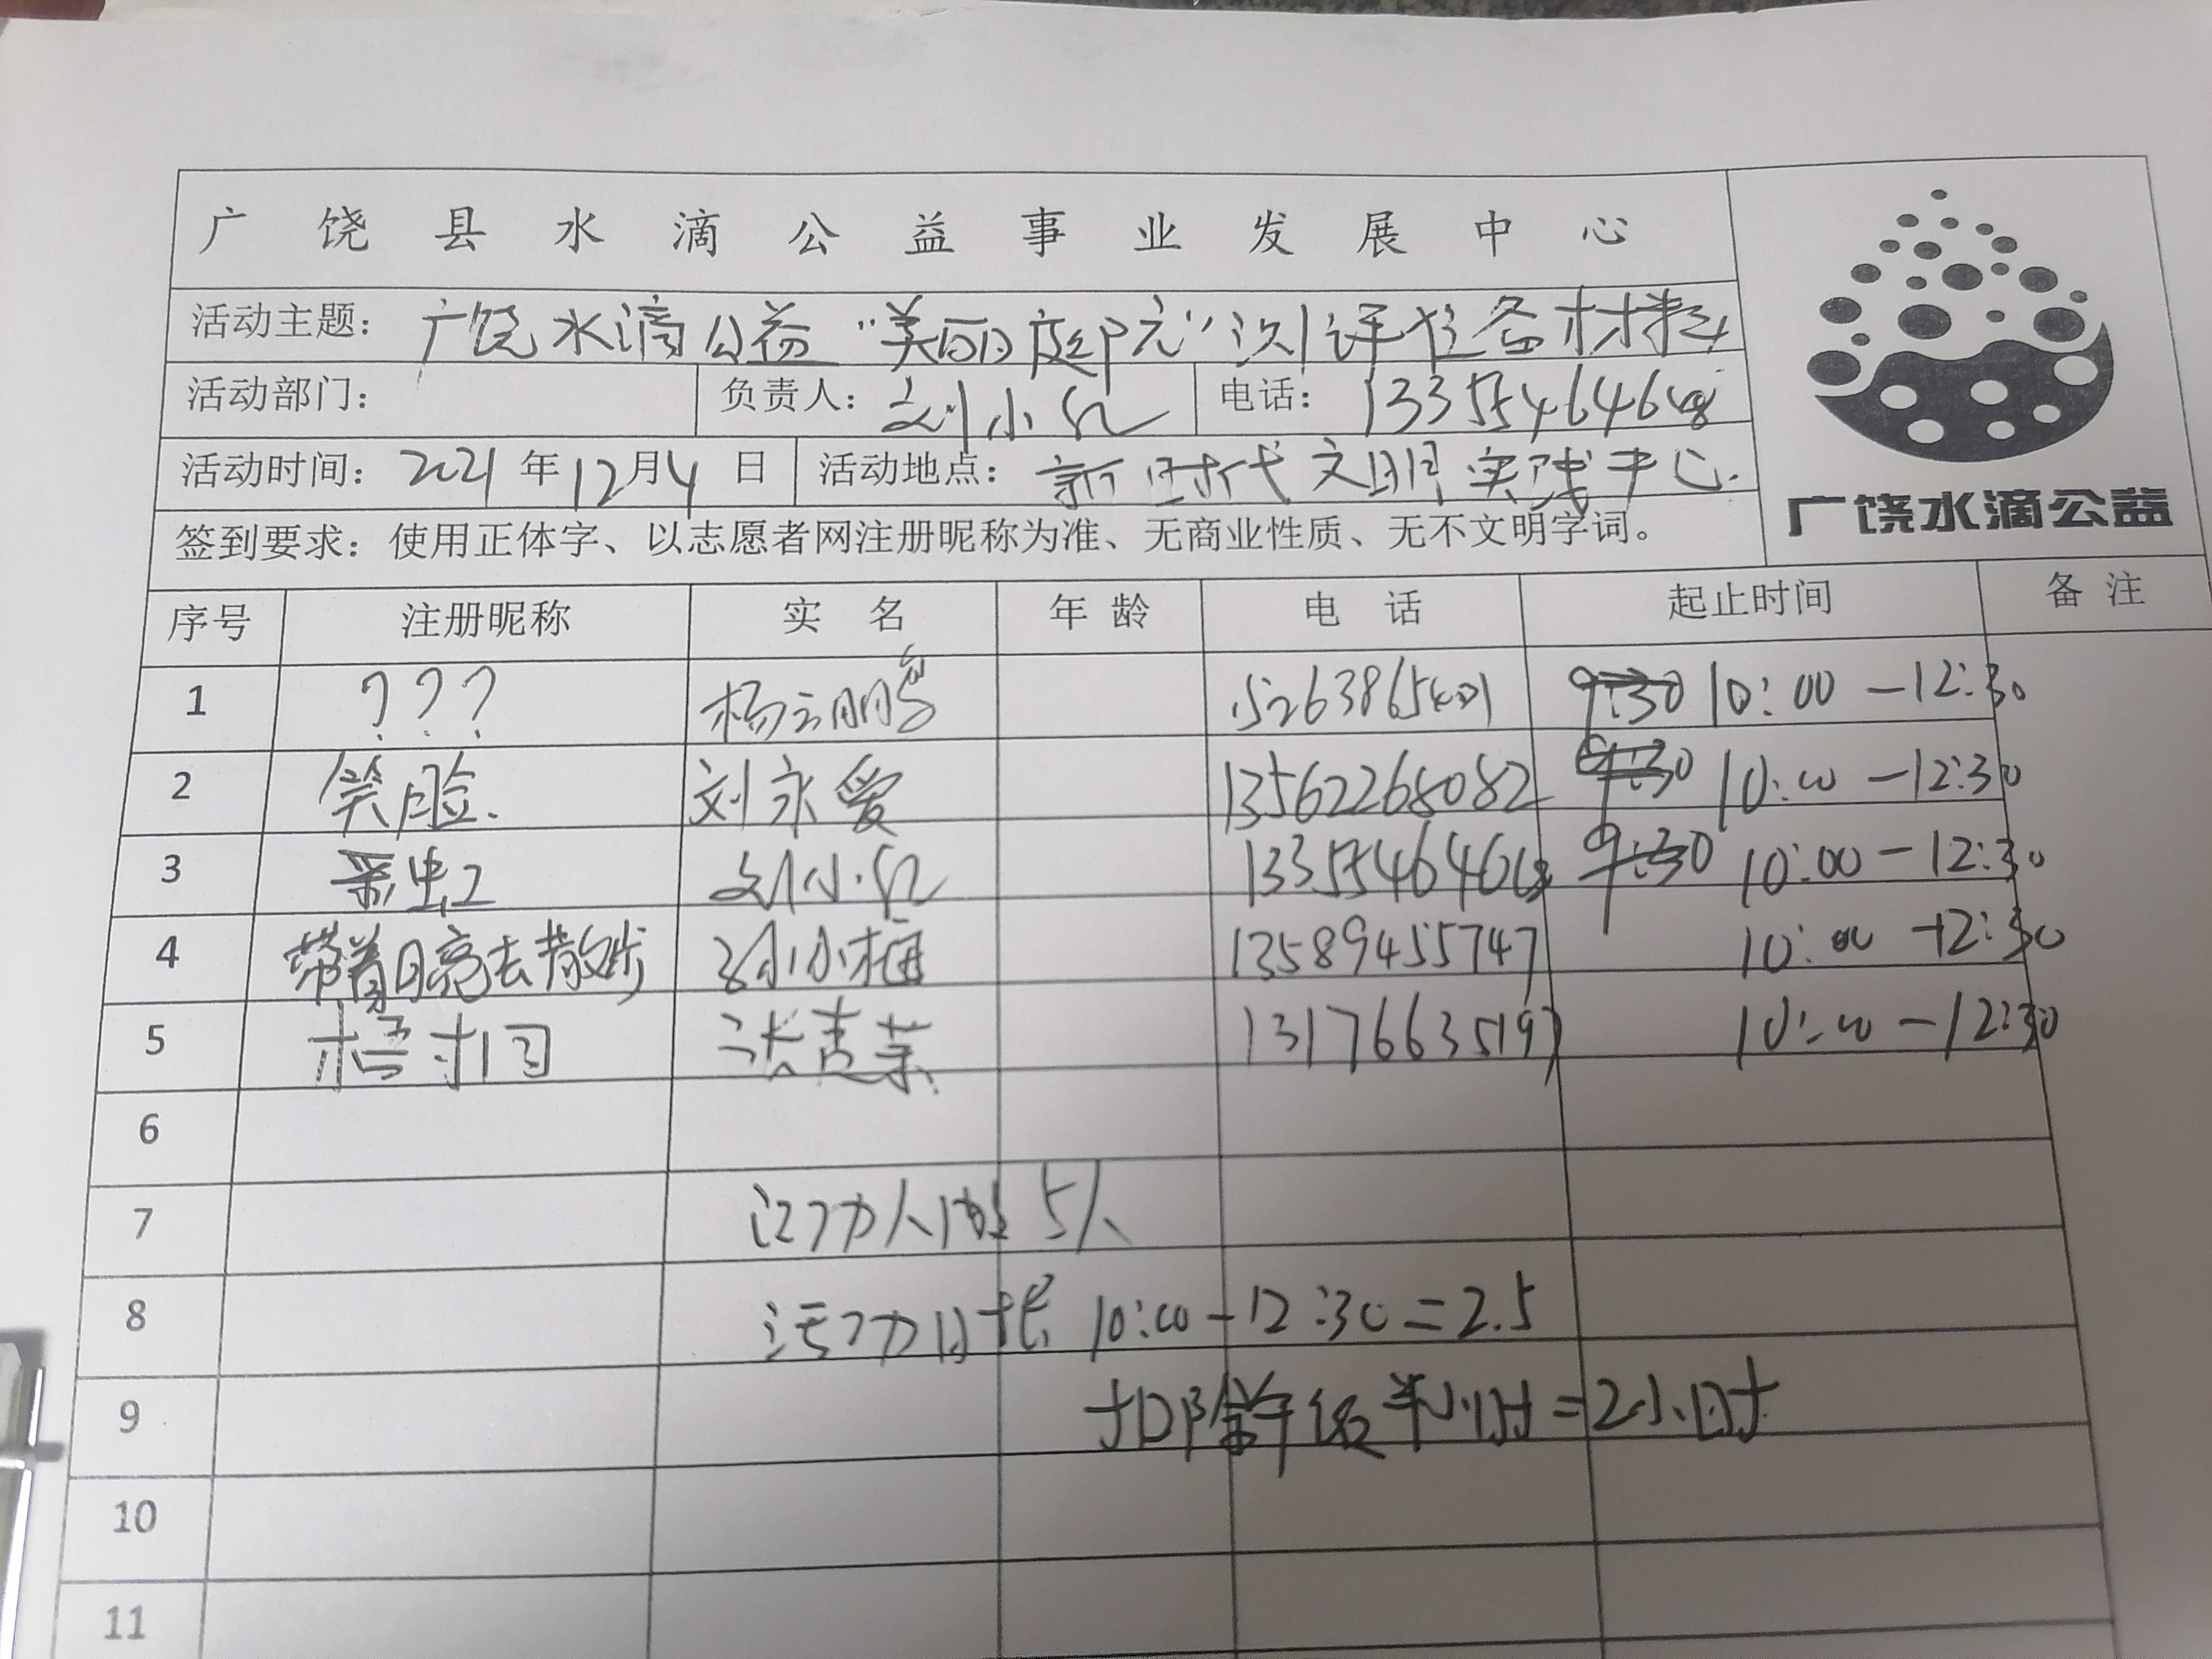 广饶县水滴公益事业发展中心
活动主题：广饶水滴公益“美丽庭院”测评准备材料
广饶水滴公益
活动部门： 负责人：刘小红 电话：13355464648
活动时间：2021年12月4日 活动地点：新时代文明实践中心.
签到要求：使用正体字、以志愿者网注册昵称为准、无商业性质、无不文明字词。
序号 注册昵称 实名 年龄 电话 起止时间 备注
1 ？？？ 杨云鹏 15263865401 9:30 10:00-12:30
2 笑脸. 刘永爱 13562268082 9:30 10:00-12:30
3 彩虹 刘小红 13355464648 9:30 10:00-12:30
4 带着月亮去散步 小梅 13589455747 10:00-12:30
5 张志荣 13176635197 10:00-12:30
6
7 活动人数 5人
8 活动时长 10:00-12:30=2.5
9 扣除午饭半小时=2小时
10
11